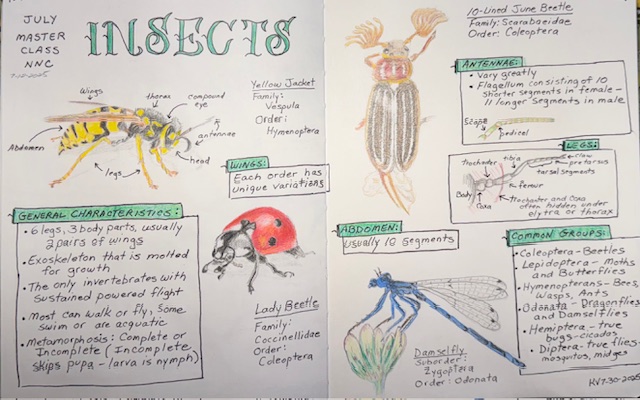 JULY
MASTER
CLASS
NNC
7-10-2025
INSECTS
Wings
thorax
compound
eye
antennae
head
legs
Abdomen
Yellow Jacket
Family:
Vespula
Order:
Hymenoptera
WINGS:
Each order has
unique variations
GENERAL CHARACTERISTICS:
• 6 legs, 3 body parts, usually
2 pairs of wings
• Exoskeleton that is molted
for growth
• The only invertebrates with
sustained powered flight
• Most can walk or fly, some
swim or are acquatic
• Metamorphosis: Complete or
Incomplete (Incomplete
skips pupa - larva is nymph)
Lady Beetle
Family:
Coccinellidae
Order:
Coleoptera
10-Lined June Beetle
Family: Scarabaeidae
Order: Coleoptera
ANTENNAE:
• Vary greatly
• Flagellum consisting of 10
shorter segments in female -
11 longer segments in male
Scape
pedicel
LEGS:
trochanter
tibia
claw
pretarsus
tarsal segments
femur
Body
Coxa
trochanter and Coxa
often hidden under
elytra or thorax
ABDOMEN:
usually 10 segments
Damselfly
Suborder:
Zygoptera
Order: Odonata
COMMON GROUPS:
• Coleoptera - Beetles
• Lepidoptera - Moths
and Butterflies
• Hymenopterans - Bees,
Wasps, Ants
• Odonata - Dragonflies
and Damselflies
• Hemiptera - true
bugs - cicadas
• Diptera - true flies -
mosquitos, midges
KV 7-30-2025